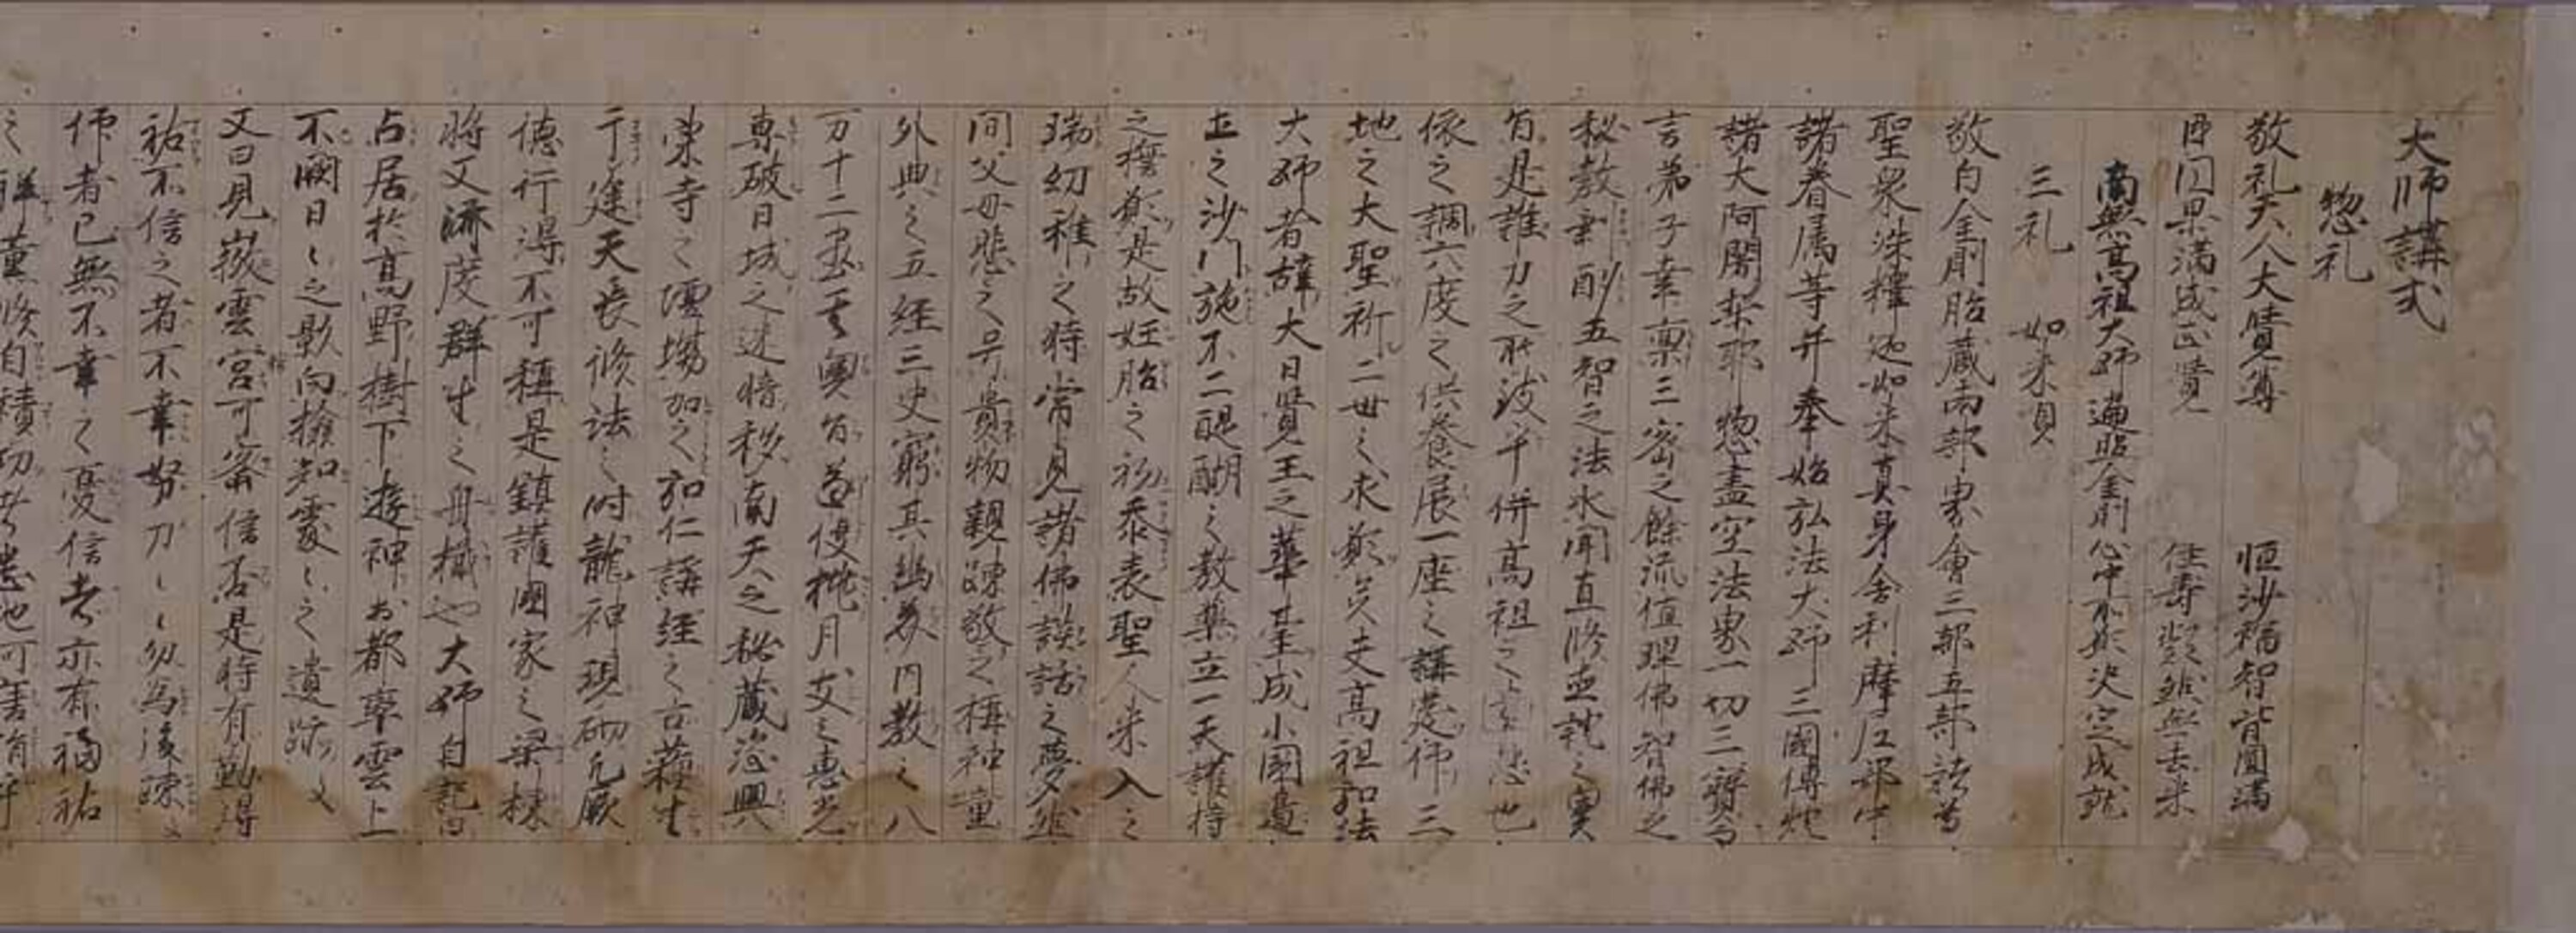 大師講式
惣礼
敬礼天人大覚尊 恒沙福智皆圓満
因円果満成正覚 住寿凝然無去来
南無高祖大師遍照金剛心中所求決定成就
三礼 如来唄
敬白金剛胎蔵両部界會三部五部諸尊
聖衆殊釋迦如来真身舎利摩尼部中
諸眷属等并奉始弘法大師三國傳燈
諸大阿闍梨耶惣盡空法界一切三寳而
言弟子幸禀三密之餘流値理佛智佛之
秘教剰酌五智之法水聞直修直証之實
旨是誰力之所致乎併高祖之恩也
依之調六度之供養展一座之講莚佛三
地之大聖祈二世之求願矣夫高祖弘法
大師者諱大日覚王之華臺成小國邊
土之沙門施不二醍醐之教藥立一天護持
之撫願是故妊胎之初忝表聖人来入之
瑞幼稚之時常見諸佛談話之夢然
間父母悲之号貴物親踈敬之稱神童
外典之五経三史窮其幽冥内教之八
万十二盡其奥旨并侵桃月友之恵光
専破日城之迷暗移南天之秘蔵益興
東寺之壇場加之弘仁講経之古蘓生
于筵天長修法之時龍神現砌凡厥
徳行得不可稱是鎮護國家之梁棟
将又濟度群生之舟檝也大師自記曰
占居於高野樹下遊神於都率雲上
不闕日〻之影向撿知處〻之遺跡文
又曰見微雲宮可審信否是時有勤得
祐不信之者不幸努力〻〻勿為後踈文
佛者已無不幸之憂信者亦有福祐